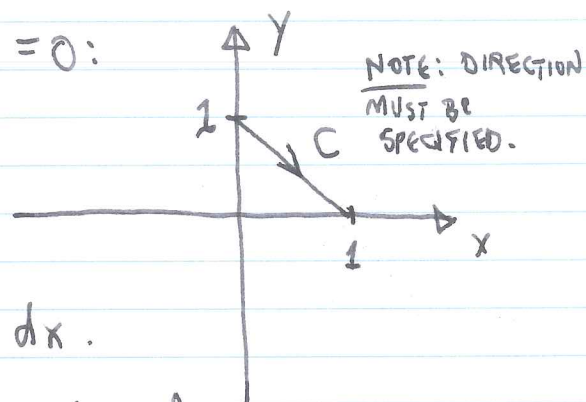 =0:
Y
NOTE: DIRECTION
MUST BE
SPECIFIED.
1
C
X
1
dx.